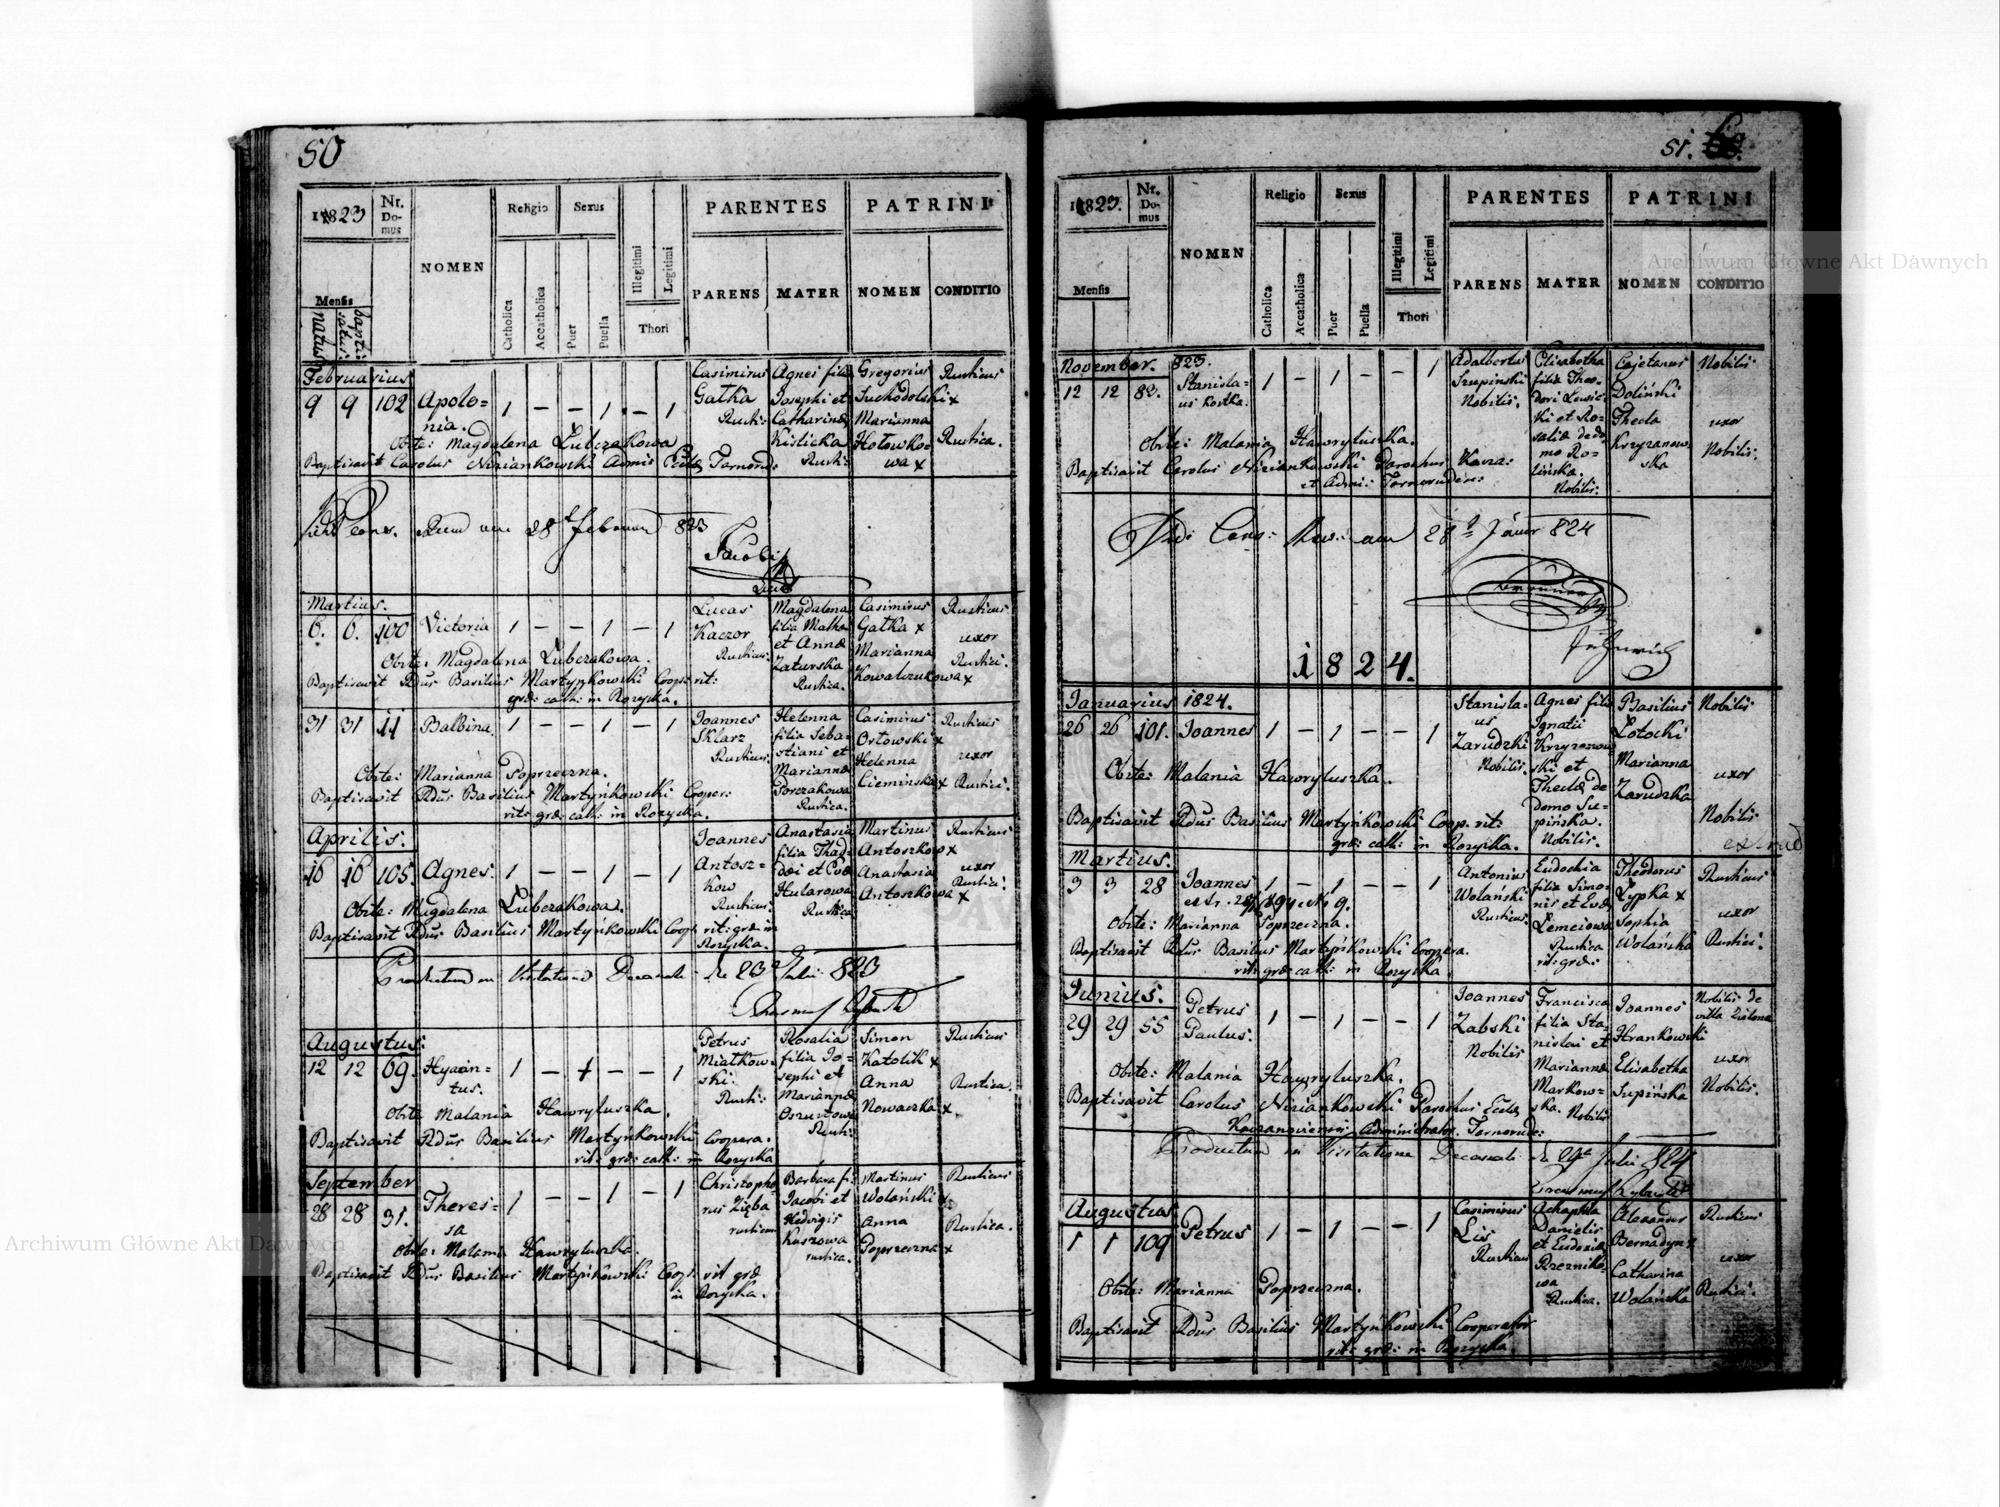 50
1823
Nr. Domus
NOMEN
Religio
Sexus
Illegitimi
Legitimi
Thori
PARENTES
PATRINI
Mensis
natus
baptisatus
Catholica
Accatholica
Puer
Puella
PARENS
MATER
NOMEN
CONDITIO
Februarius
9 9 102 Apolo=
nia.
1 — — 1 — 1
Casimirus
Gatka
Rusti:
Agnes filia
Josephi et
Catharinæ
Kislicka
Rusti:
Gregorius
Suchodolski x
Marianna
Hołowko=
wa x
Rusticus
Rustica.
Obste: Magdalena Łubczakowa
Baptisavit Carolus Niziankowski Admis
28 Februar 823
Jacobi
Martius.
6. 6. 100 Victoria 1 — — 1 — 1
Lucas
Kaczor
Rusticus.
Magdalena
filia Mathæ
et Annæ
Zaturska
Rustica.
Casimirus
Gatka x
Marianna
Kowalczukowa x
Rusticus
uxor
Rustici.
Obste: Magdalena Łubczakowa.
Baptisavit Rdus Basilius Martyńkowski Coop: rit:
græ: cath: in Rozyska.
31 31 11 Balbina. 1 — — 1 — 1
Joannes
Sklarz
Rusticus.
Helenna
filia Seba=
stiani et
Mariannæ
Porczakowa
Rustica.
Casimirus
Ortowski x
Helenna
Ciemińska x
Rusticus
uxor
Rustici.
Obste: Marianna Poprzeczna.
Baptisavit Rdus Basilius Martyńkowski Cooper:
rit: græ: cath: in Rozyska.
Aprilis.
16 16 105. Agnes. 1 — — 1 — 1
Joannes
Antosz=
kow
Rusticus.
Anastasia
filia Thad=
dæi et Evæ
Hularowa
Rustica
Martinus
Antoszkow x
Anastasia
Antoszkowa x
Rusticus
uxor
Rustici.
Obste: Magdalena Łubczakowa.
Baptisavit Rdus Basilius Martyńkowski Coop. rit: græ: in
Rozyska.
Productum in Visitatione Decanali de 23 Julii 823
Augustus.
12 12 69. Hyacin=
tus.
1 — 1 — — 1
Petrus
Miatkow=
ski.
Rusti:
Rosalia
filia Jo=
sephi et
Mariannæ
Rusti:
Simon
Katolik x
Anna
Nowaczka x
Rusticus
Rustica.
Obste Malania Hawryluszka.
Baptisavit Rdus Basilius Martyńkowski Coopera.
rit: græ: cath: in Rozyska
September
28 28 31. Theres=
sa
1 — — 1 — 1
Christopho=
rus Zięba
rusticus
Barbara fi:
Jacobi et
Hedvigis
Kuszowa
rustica.
Martinus
Wolański x
Anna
Poprzeczna x
Rusticus
Rustica.
Obste: Malania Hawryluszka.
Baptisavit Rdus Basilius Martyńkowski Coop: rit græ
in Rozyska.
51.
1823.
Nr. Domus
NOMEN
Religio
Sexus
Illegitimi
Legitimi
Thori
PARENTES
PATRINI
Mensis
Catholica
Accatholica
Puer
Puella
PARENS
MATER
NOMEN
CONDITIO
November. 823.
12 12 82. Stanisla=
us Kostka.
1 — 1 — — 1
Adalbertus
Szupinski
Nobilis.
Elisabetha
filia Theo=
dori
ki et Ro=
saliæ de do
mo Ro=
lińska.
Nobilis:
Cajetanus
Doliński
Thecla
Krzyzanow
ska
Nobilis
uxor
Nobilis.
Obste: Malania Hawryluszka.
Baptisavit Carolus Niziankowski Parochus Kacza:
et Admi: Tarnorudens:
Vidi Cano: Rev: am 28 Jäner 824
1824.
Januarius 1824.
26 26 101. Joannes 1 — 1 — — 1
Stanisla=
us
Zarudzki
Nobilis.
Agnes filia
Ignatii
Krzyzanow
ski et
Theclæ de
domo Su=
pińska.
Nobilis.
Basilius
Łotocki
Marianna
Zarudzka
Nobilis
uxor
Nobilis
Obste: Malania Hawryluszka.
Baptisavit Rdus Basilius Martyńkowski Coop. rit:
græ: cath: in Rozyska.
Martius.
3 3 28 Joannes 1 — 1 — — 1
Antonius
Wolański
Rusticus.
Eudochia
filia Simo=
nis et Evæ
Lemciowa
Rustica
rit: græ:
Theodorus
Łypka x
Sophia
Wolańska
Rusticus
uxor
Rustici.
Obste: Marianna Poprzeczna.
Baptisavit Rdus Basilius Martyńkowski Coopera.
rit: græ: cath: in Rozyska
Junius.
29 29 55 Petrus
Paulus.
1 — 1 — — 1
Joannes
Zabski
Nobilis
Francisca
filia Sta=
nislai et
Mariannæ
Markow=
ska. Nobilis
Joannes
Hrankowski
Elisabetha
Supińska
Nobilis de
villa Zielona
uxor
Nobilis.
Obste: Malania Hawryluszka.
Baptisavit Carolus Niziankowski Parochus Eccle
Kaczanoviensis Administrator. Tarnorude:
Productum in Visitatione Decanali de Julii 824
Augustus
1 1 109 Petrus 1 — 1 — — 1
Casimirus
Lis
Rusticus
Achaphia
Danielis
et Eudoxiæ
Rustica.
Alexander
Bernadyn x
Catharina
Wolańska
Rusticus
uxor
Rustici.
Obste: Marianna Poprzeczna.
Baptisavit Rdus Basilius Martyńkowski Cooperator
rit: græ: in Rozyska.
Archiwum Główne Akt Dawnych
Archiwum Główne Akt Dawnych